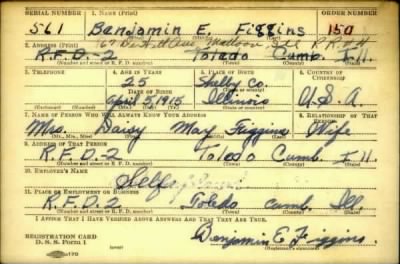 SERIAL NUMBER 1. NAME (Print) ORDER NUMBER
561 Benjamin E. Figgins 150
2. ADDRESS (Print)
R.F.D-2 Toledo Cumb. Ill.
(Number and street or R. F. D. number) (Town) (County) (State)
3. TELEPHONE 4. AGE IN YEARS 5. PLACE OF BIRTH 6. COUNTRY OF CITIZENSHIP
25 Shelby Co.
DATE OF BIRTH (Town or county)
April 5, 1915 Illinois U.S.A.
(Exchange) (No.) (Mo.) (Day) (Yr.) (State or country)
7. NAME OF PERSON WHO WILL ALWAYS KNOW YOUR ADDRESS 8. RELATIONSHIP OF THAT PERSON
Mrs. Daisy May Figgins Wife
(Mr., Mrs., Miss) (First) (Middle) (Last)
9. ADDRESS OF THAT PERSON
R.F.D.-2 Toledo Cumb. Ill.
(Number and street or R. F. D. number) (Town) (County) (State)
10. EMPLOYER'S NAME
Self
11. PLACE OF EMPLOYMENT OR BUSINESS
R.F.D.2 Toledo Cumb. Ill.
(Number and street or R. F. D. number) (Town) (County) (State)
I AFFIRM THAT I HAVE VERIFIED ABOVE ANSWERS AND THAT THEY ARE TRUE.
REGISTRATION CARD Benjamin E. Figgins.
D. S. S. Form 1 (over) (Registrant's signature)